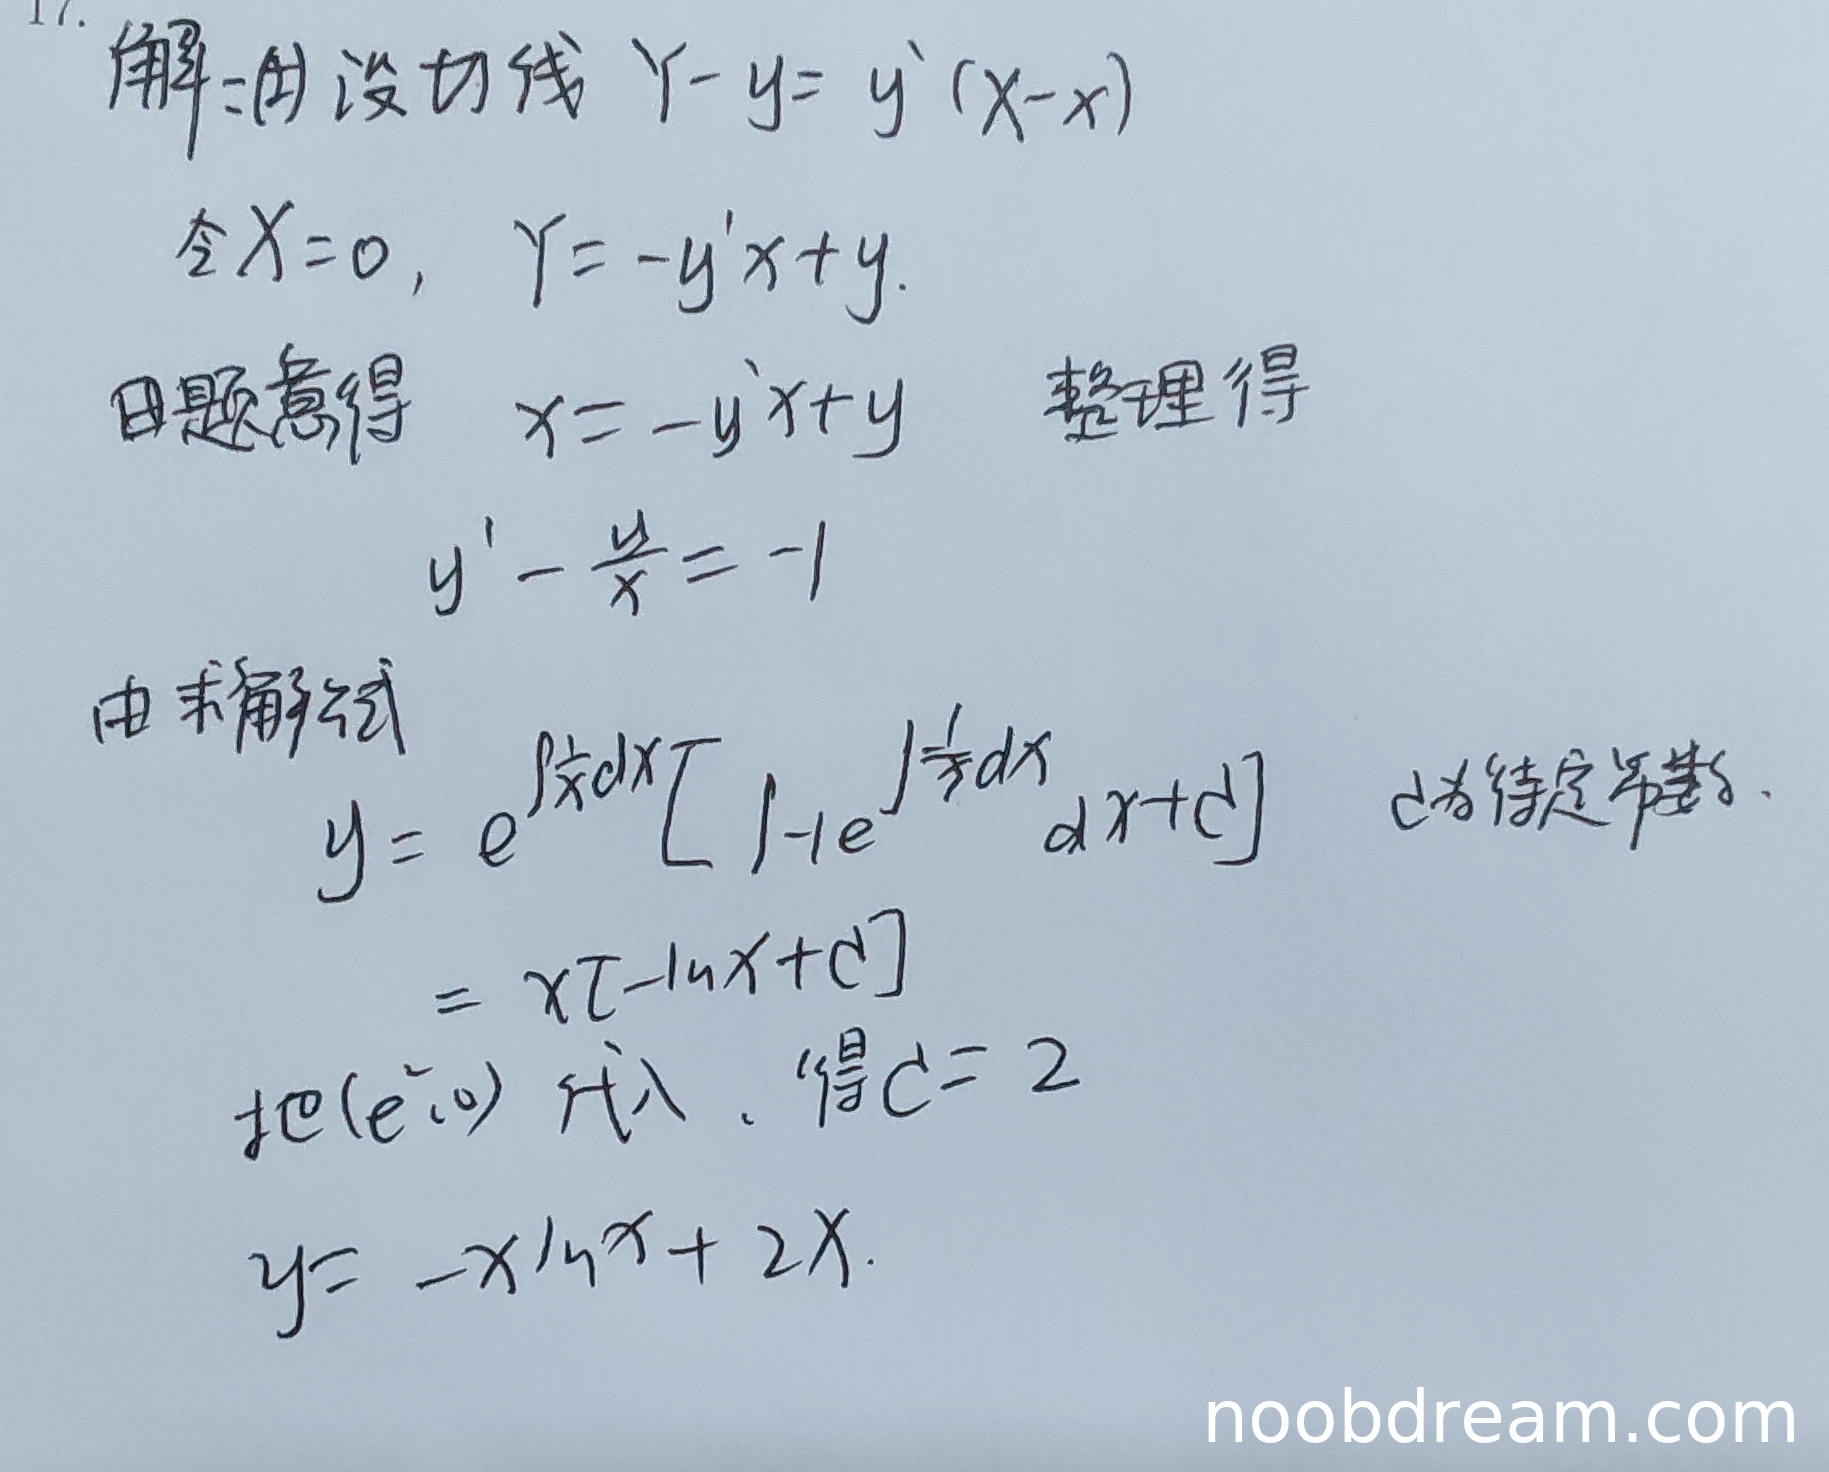 17.
解:(1) 设切线 Y-y=y'(X-x)
令X=0, Y=-y'x+y.
由题意得 x=-y'x+y 整理得
y'-\frac{y}{x}=-1
由求解公式
y=e^{∫\frac{1}{x}dx}[∫-1e^{∫-\frac{1}{x}dx}dx+C] C为待定常数.
=x[-lnx+C]
把(e²,0)代入, 得C=2
y=-xlnx+2x.
noobdream.com